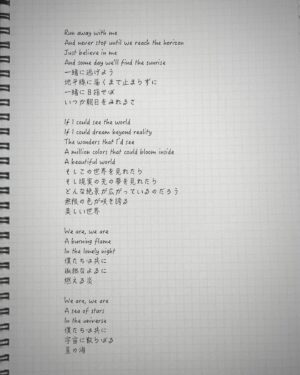 Run away with me
And never stop until we reach the horizon
Just believe in me
And some day we'll find the sunrise
一緒に逃げよう
地平線に届くまで止まらずに
一緒に目指せば
いつか朝日をみれるさ
If I could see the world
If I could dream beyond reality
The wonders that I'd see
A million colors that could bloom inside
A beautiful world
もしこの世界を見れたら
もし現実の先の夢を見れたら
どんな絶景が広がっているのだろう
無限の色が咲き誇る
美しい世界
We are, we are
A burning flame
In the lonely night
僕たちは共に
孤独なよるに
燃える炎
We are, we are
A sea of stars
In the universe
僕たちは共に
宇宙に散らばる
星の海